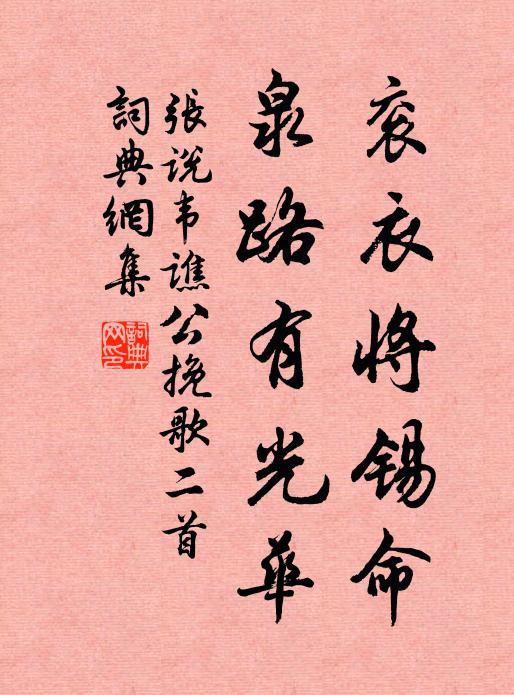 衮衣将锡命
泉路有光華
張说韦譙公挽歌二首
詞典網集
詞典網印